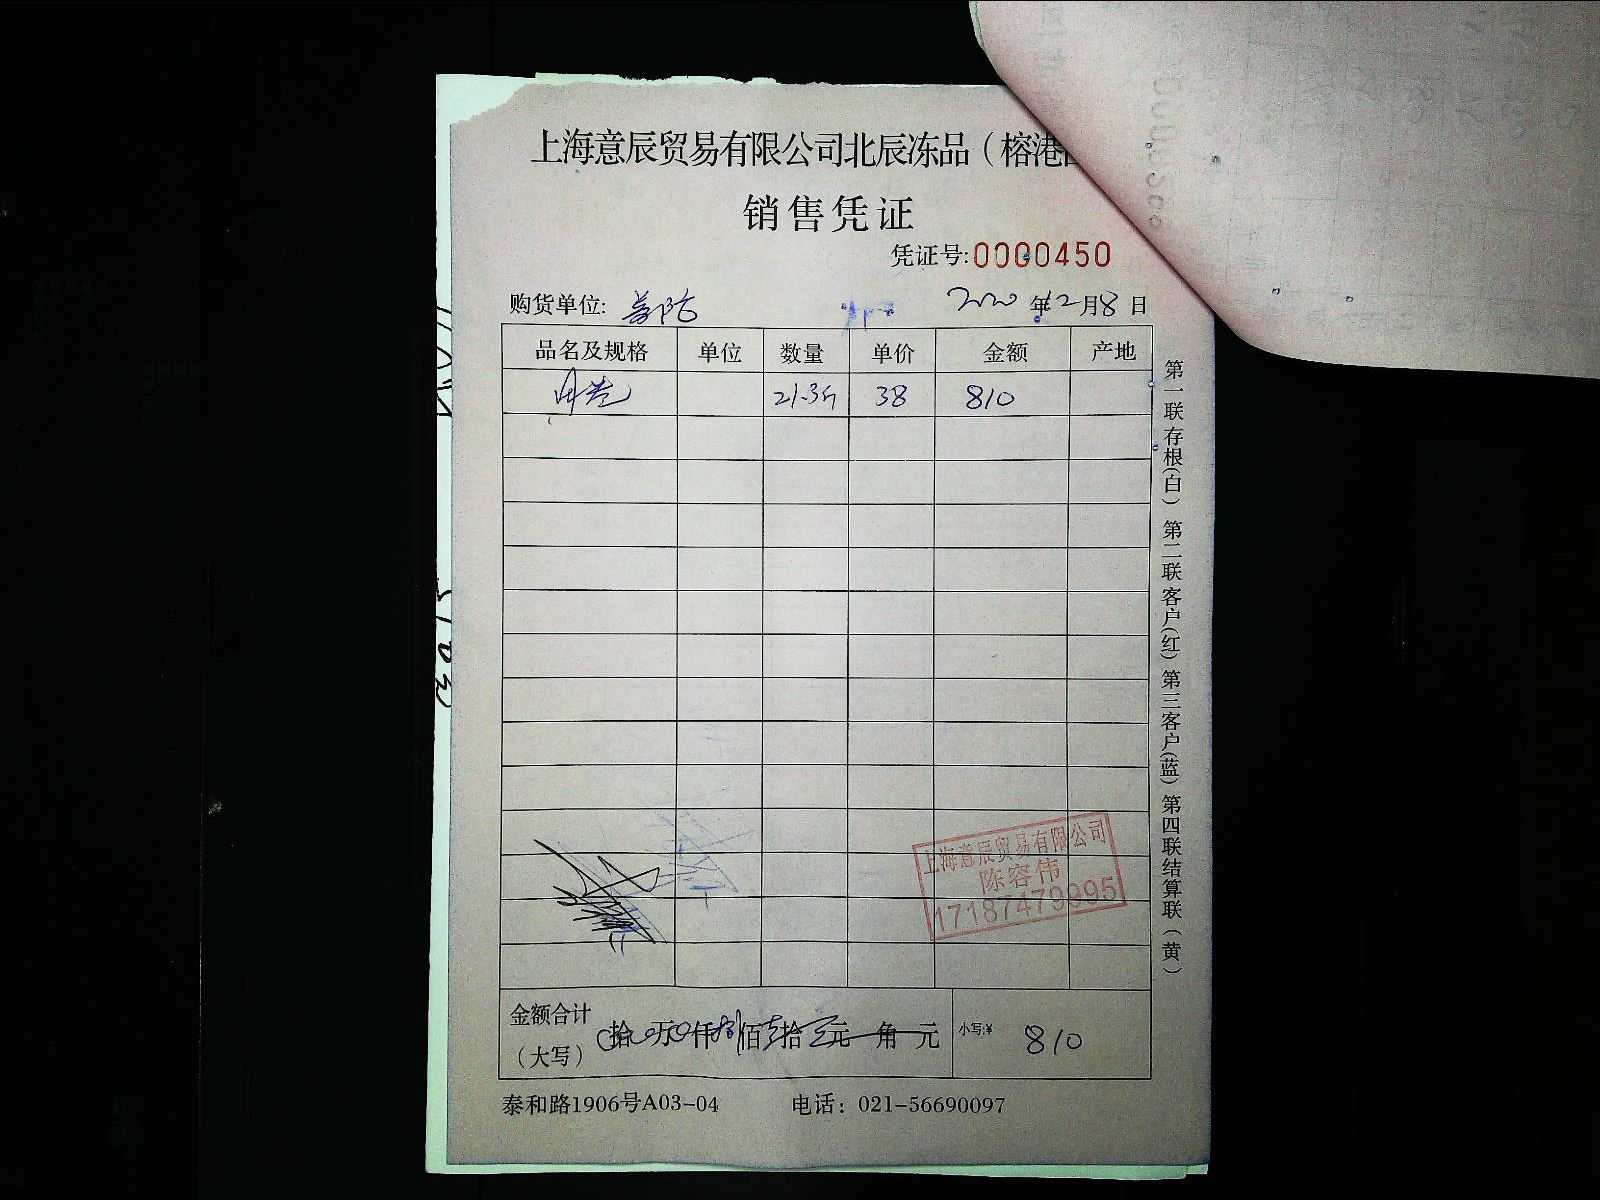 上海意辰贸易有限公司北辰冻品（榕港
销售凭证
凭证号:0000450
购货单位: 2020 年12月8日
品名及规格 单位 数量 单价 金额 产地
21.3斤 38 810
上海意辰贸易有限公司
陈容伟
17187479995
金额合计（大写） 拾 万 仟 捌佰壹拾 元 角 元 小写:¥ 810
泰和路1906号A03-04 电话：021-56690097
第一联存根(白) 第二联客户(红) 第三客户(蓝) 第四联结算联(黄)